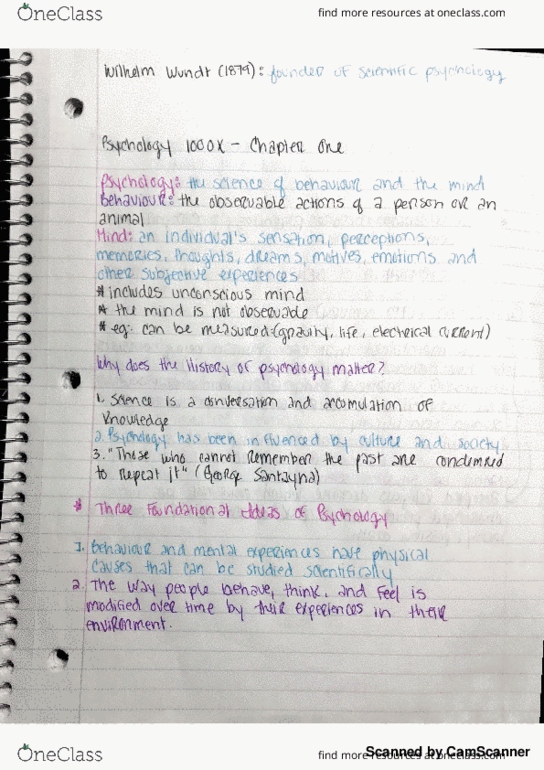 OneClass
find more resources at oneclass.com
Wilhelm Wundt (1879): founder of scientific psychology
Psychology 1000X - Chapter One
Psychology: the science of behaviour and the mind
Behaviour: the observable actions of a person or an
animal
Mind: an individual's sensation, perceptions,
memories, thoughts, dreams, motives, emotions and
other subjective experiences
* includes unconscious mind
* the mind is not observable
* eg: can be measured (gravity, life, electrical current)
Why does the History of psychology matter?
1. Science is a conversation and accomulation of
knowledge
2. Psychology has been influenced by culture and society
3. "Those who cannot remember the past are condemned
to repeat it" (George Santayna)
* Three Foundational Ideas of Psychology
1. Behaviour and mental experiences have physical
causes that can be studied scientifically
2. The way people behave, think, and feel is
modified over time by their experiences in their
environment.
OneClass
find more resources at oneclass.com
Scanned by CamScanner